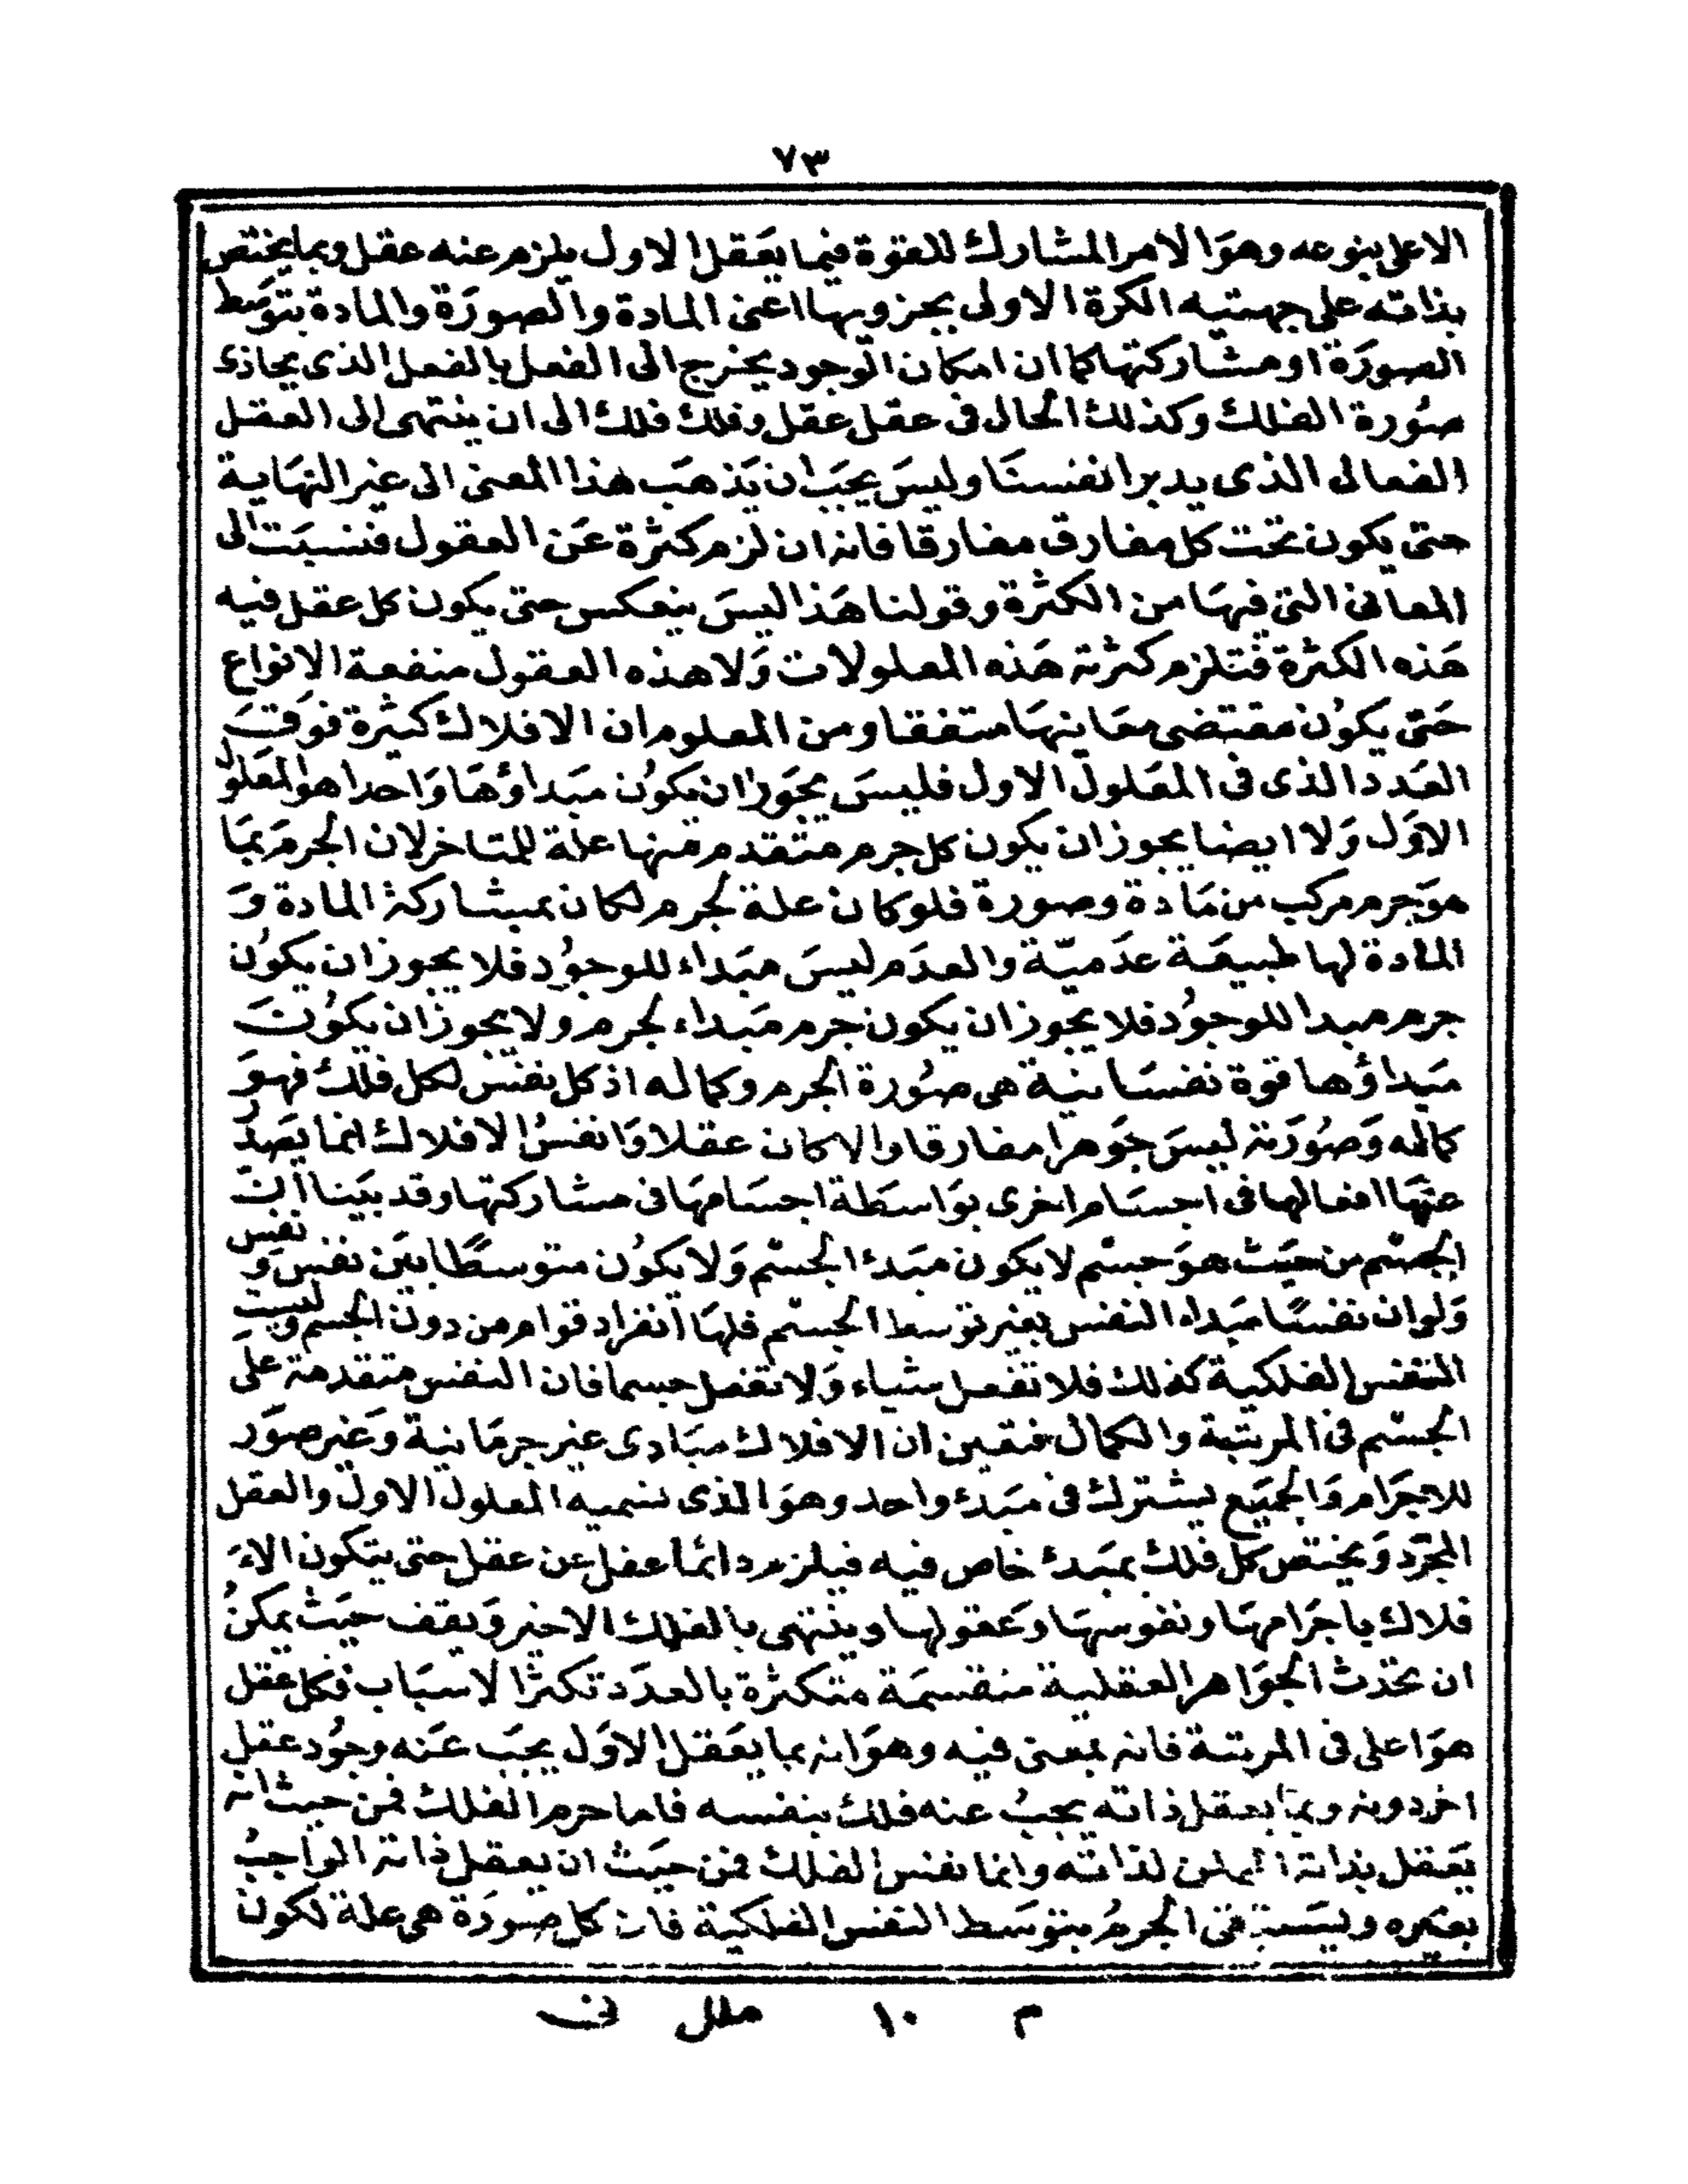 ٧٣
الاعلى بنوعه وهوَ الامر المشارك للقوة فيما يعَقل الاول يلزم عنه عقل وبما يختص
بذاته على جهتيه الكرة الاولى بجزويها اعنى المادة والصورَة والمادة بتوَسط
الصورَة او مشاركتها كما ان امكان الوجود يخرج الى الفعل بالفعل الذى يحاذى
صُورة الفلك وكذلك الحال فى عقل عقل وفلك فلك الى ان ينتهى الى العقل
الفعال الذى يدبر انفسنَا وليسَ يجَب ان يَذهَب هذا المعنى الى غير النهَاية
حتى يكون تحت كل مفارق مفارقا فانه ان لزم كثرة عَن العقول فنسبَت الى
المعانى التى فيهَا من الكثرة وقولنا هَذا ليسَ ينعكس حتى يكون كل عقل فيه
هَذه الكثرة فتلزم كثرته هَذه المعلولات وَلا هذه العقول منفعة الانواع
حَتى يكوُن مقتضى معَاينهَا متفقا ومن المعلوم ان الافلاك كثيرة فوَقَ
العَدد الذى فى المعَلول الاول فليسَ يجَوز ان يكوُن مبَداؤهَا وَاحدا هو المعَلول
الاوَل وَلا ايضا يجوز ان يكون كل جرم متقدم منها علة للمتاخر لان الجرمَ بمَا
هوَ جرم مركب من مَادة وصورة فلو كان علة لجرم لكان بمشاركة المادة وَ
المادة لها طبيعَة عدَميّة والعدَم ليسَ مبَداء للوجوُد فلا يجوز ان يكوُن
جرم مبدا للوجوُد فلا يجوز ان يكون جرم مبَداء لجرم ولا يجوز ان يكوُنَ
مبَداؤها قوة نفسَانية هى صوُرة الجرم وكماله اذ كل نفس لكل فلك فهوَ
كماله وَصوُرَته ليسَ جوَهرا مفارقا والا كان عقلا وَانفسُ الافلاك انما يصَدُر
عنهَا افعالها فى اجسَام اخرى بوَاسَطة اجسَامهَا فى مشاركتها وقد بيَنا ان
الجسْم من حيَث هوَ جسْم لا يكون مبَدء الجسْم وَلا يكوُن متوسطًا بيَن نفس وَ نفس
وَلو ان نفسًا مبَداء النفس بغير توسط الجسْم فلهَا انفراد قوام من دون الجسم وليست
النفس الفلكية كذلك فلا تفعل شياء وَلا تفعل جسما فان النفس متقدمة علىَ
الجسْم فى المرتبة والكمال فتعين ان الافلاك مبَادى غير جرمَانية وَغير صوَر
للاجرَام وَالجميَع يشترك فى مبَدء واحد وهوَ الذى نسميه المعلول الاول والعقل
المجرَد وَيختص كل فلك بمبَدء خاص فيه فيلزم دائما عقل عن عقل حتى يتكون الاَ
فلاك باجرَامهَا ونفوسهَا وَعقولها وينتهى بالفلك الاخير وَيقف حيَث يمكنُ
ان تحَدث الجوَاهر العقلية منقسمَة متكثرة بالعدَد تكثرا لاسبَاب فكل عقل
هوَ اعلى فى المرتبة فانه بمعنى فيه وهوَ انه بما يعَقل الاوَل يجَب عَنه وجوُد عقل
اخر دونه وبما يعقل ذاته يجبُ عنه فلك بنفسه فاما جرم الفلك فمن حيث انه
يعَقل بذاته الممكن لذاته وانما نفس الفلك فمن حيَث ان يعقل ذاته الواجبُ
بغيره ويستبقى الجرمُ بتوَسط النفس الفلكية فان كل صورَة هى علة لكون
م ١٠ ملل نى